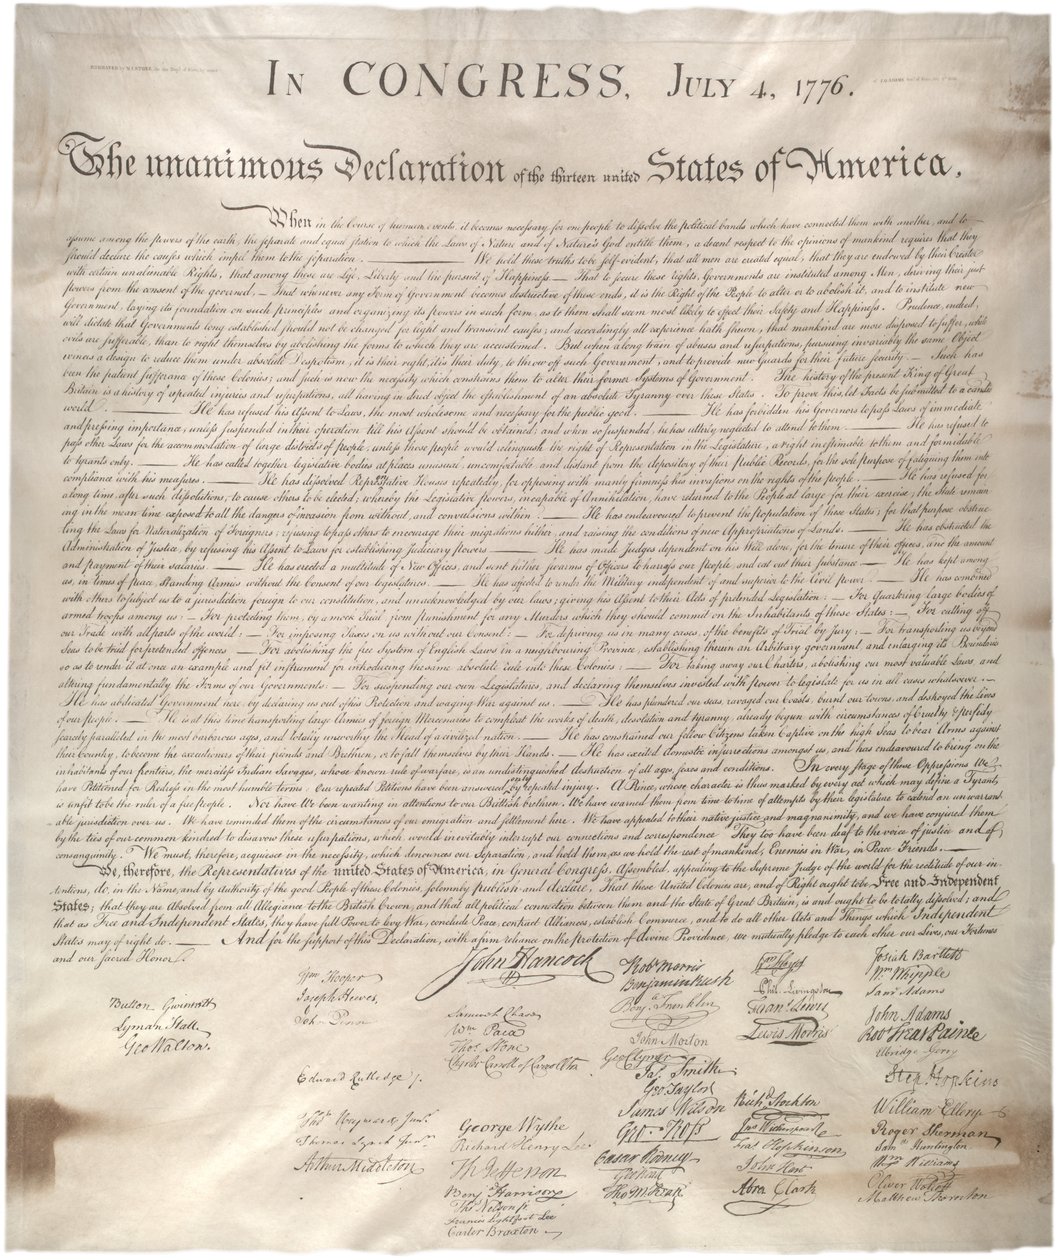 IN CONGRESS, JULY 4, 1776.
The unanimous Declaration of the thirteen united States of America,
When in the Course of human events, it becomes necessary for one people to dissolve the political bands which have connected them with another, and to
assume among the powers of the earth, the separate and equal station to which the Laws of Nature and of Nature's God entitle them, a decent respect to the opinions of mankind requires that they
should declare the causes which impel them to the separation. ——— We hold these truths to be self-evident, that all men are created equal, that they are endowed by their Creator
with certain unalienable Rights, that among these are Life, Liberty and the pursuit of Happiness.— That to secure these rights, Governments are instituted among Men, deriving their just
powers from the consent of the governed, — That whenever any Form of Government becomes destructive of these ends, it is the Right of the People to alter or to abolish it, and to institute new
Government, laying its foundation on such principles and organizing its powers in such form, as to them shall seem most likely to effect their Safety and Happiness. Prudence, indeed,
will dictate that Governments long established should not be changed for light and transient causes; and accordingly all experience hath shewn, that mankind are more disposed to suffer, while
evils are sufferable, than to right themselves by abolishing the forms to which they are accustomed. But when a long train of abuses and usurpations, pursuing invariably the same Object
evinces a design to reduce them under absolute Despotism, it is their right, it is their duty, to throw off such Government, and to provide new Guards for their future security.— Such has
been the patient sufferance of these Colonies; and such is now the necessity which constrains them to alter their former Systems of Government. The history of the present King of Great
Britain is a history of repeated injuries and usurpations, all having in direct object the establishment of an absolute Tyranny over these States. To prove this, let Facts be submitted to a candid
world. ——— He has refused his Assent to Laws, the most wholesome and necessary for the public good. ——— He has forbidden his Governors to pass Laws of immediate
and pressing importance, unless suspended in their operation till his Assent should be obtained; and when so suspended, he has utterly neglected to attend to them. ——— He has refused to
pass other Laws for the accommodation of large districts of people, unless those people would relinquish the right of Representation in the Legislature, a right inestimable to them and formidable
to tyrants only. ——— He has called together legislative bodies at places unusual, uncomfortable, and distant from the depository of their public Records, for the sole purpose of fatiguing them into
compliance with his measures. ——— He has dissolved Representative Houses repeatedly, for opposing with manly firmness his invasions on the rights of the people. ——— He has refused for
a long time, after such dissolutions, to cause others to be elected; whereby the Legislative powers, incapable of Annihilation, have returned to the People at large for their exercise; the State remain
ing in the mean time exposed to all the dangers of invasion from without, and convulsions within. ——— He has endeavoured to prevent the population of these States; for that purpose obstruc
ting the Laws for Naturalization of Foreigners; refusing to pass others to encourage their migrations hither, and raising the conditions of new Appropriations of Lands. ——— He has obstructed the
Administration of Justice, by refusing his Assent to Laws for establishing Judiciary powers. ——— He has made Judges dependent on his Will alone, for the tenure of their offices, and the amount
and payment of their salaries. ——— He has erected a multitude of New Offices, and sent hither swarms of Officers to harrass our people, and eat out their substance. ——— He has kept among
us, in times of peace, Standing Armies without the Consent of our legislatures. ——— He has affected to render the Military independent of and superior to the Civil power. ——— He has combined
with others to subject us to a jurisdiction foreign to our constitution, and unacknowledged by our laws; giving his Assent to their Acts of pretended Legislation: — For Quartering large bodies of
armed troops among us: — For protecting them, by a mock Trial, from punishment for any Murders which they should commit on the Inhabitants of these States: — For cutting off
our Trade with all parts of the world: — For imposing Taxes on us without our Consent: — For depriving us in many cases, of the benefits of Trial by Jury: — For transporting us beyond
Seas to be tried for pretended offences — For abolishing the free System of English Laws in a neighbouring Province, establishing therein an Arbitrary government, and enlarging its Boundaries
so as to render it at once an example and fit instrument for introducing the same absolute rule into these Colonies: — For taking away our Charters, abolishing our most valuable Laws, and
altering fundamentally the Forms of our Governments: — For suspending our own Legislatures, and declaring themselves invested with power to legislate for us in all cases whatsoever.—
He has abdicated Government here, by declaring us out of his Protection and waging War against us. ——— He has plundered our seas, ravaged our Coasts, burnt our towns, and destroyed the lives
of our people. ——— He is at this time transporting large Armies of foreign Mercenaries to compleat the works of death, desolation and tyranny, already begun with circumstances of Cruelty & perfidy
scarcely paralleled in the most barbarous ages, and totally unworthy the Head of a civilized nation. ——— He has constrained our fellow Citizens taken Captive on the high Seas to bear Arms against
their Country, to become the executioners of their friends and Brethren, or to fall themselves by their Hands. ——— He has excited domestic insurrections amongst us, and has endeavoured to bring on the
inhabitants of our frontiers, the merciless Indian Savages, whose known rule of warfare, is an undistinguished destruction of all ages, sexes and conditions. In every stage of these Oppressions We
have Petitioned for Redress in the most humble terms: Our repeated Petitions have been answered only by repeated injury. A Prince, whose character is thus marked by every act which may define a Tyrant,
is unfit to be the ruler of a free people. Nor have We been wanting in attentions to our Brittish brethren. We have warned them from time to time of attempts by their legislature to extend an unwarrant
able jurisdiction over us. We have reminded them of the circumstances of our emigration and settlement here. We have appealed to their native justice and magnanimity, and we have conjured them
by the ties of our common kindred to disavow these usurpations, which, would inevitably interrupt our connections and correspondence. They too have been deaf to the voice of justice and of
consanguinity. We must, therefore, acquiesce in the necessity, which denounces our Separation, and hold them, as we hold the rest of mankind, Enemies in War, in Peace Friends. ———
We, therefore, the Representatives of the united States of America, in General Congress, Assembled, appealing to the Supreme Judge of the world for the rectitude of our in-
tentions, do, in the Name, and by Authority of the good People of these Colonies, solemnly publish and declare, That these United Colonies are, and of Right ought to be Free and Independent
States; that they are Absolved from all Allegiance to the British Crown, and that all political connection between them and the State of Great Britain, is and ought to be totally dissolved; and
that as Free and Independent States, they have full Power to levy War, conclude Peace, contract Alliances, establish Commerce, and to do all other Acts and Things which Independent
States may of right do. ——— And for the support of this Declaration, with a firm reliance on the protection of divine Providence, we mutually pledge to each other our Lives, our Fortunes
and our sacred Honor.
Button Gwinnett
Lyman Hall
Geo Walton.
Wm Hooper
Joseph Hewes,
John Penn
Edward Rutledge /.
Thos Heyward Junr.
Thomas Lynch Junr.
Arthur Middleton
John Hancock
Samuel Chase
Wm Paca
Thos Stone
Charles Carroll of Carrollton
George Wythe
Richard Henry Lee
Th Jefferson
Benj Harrison
Thos Nelson jr.
Francis Lightfoot Lee
Carter Braxton
Robt Morris
Benjamin Rush
Benja Franklin
John Morton
Geo Clymer
Jas. Smith.
Geo. Taylor
James Wilson
Geo. Ross
Caesar Rodney
Geo Read
Tho M:Kean
Wm Floyd
Phil. Livingston
Frans. Lewis
Lewis Morris
Richd Stockton
Jno Witherspoon
Fras. Hopkinson
John Hart
Abra Clark
Josiah Bartlett
Wm Whipple
Saml Adams
John Adams
Robt Treat Paine
Elbridge Gerry
Step. Hopkins
William Ellery
Roger Sherman
Saml Huntington
Wm Williams
Oliver Wolcott
Matthew Thornton